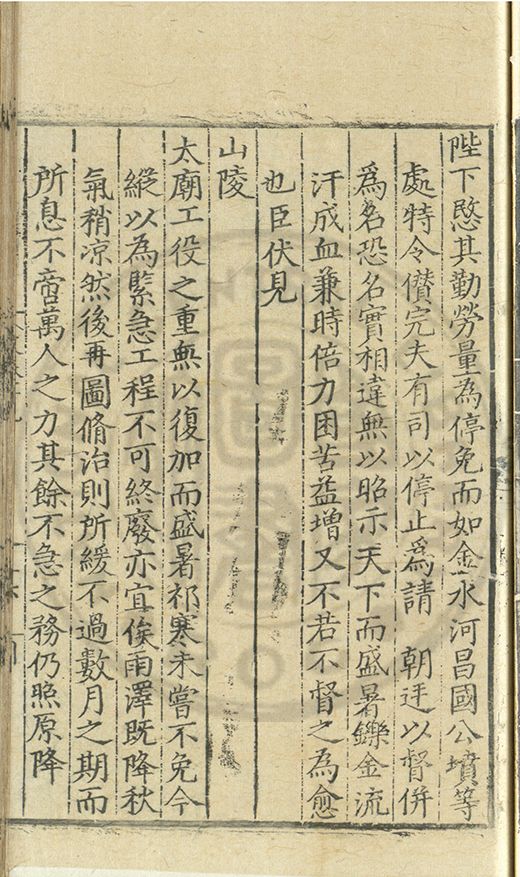 陛下愍其勤勞量為停免而如金水河昌國公墳等
處特令儹完夫有司以停止爲請　朝廷以督併
爲名恐名實相違無以昭示天下而盛暑鑠金流
汗成血兼時倍力困苦益增又不若不督之為愈
也臣伏見
山陵
太廟工役之重無以復加而盛暑祁寒未嘗不免今
縱以為緊急工程不可終廢亦宜俟雨澤既降秋
氣稍凉然後再圖脩治則所緩不過數月之期而
所息不啻萬人之力其餘不急之務仍照原降